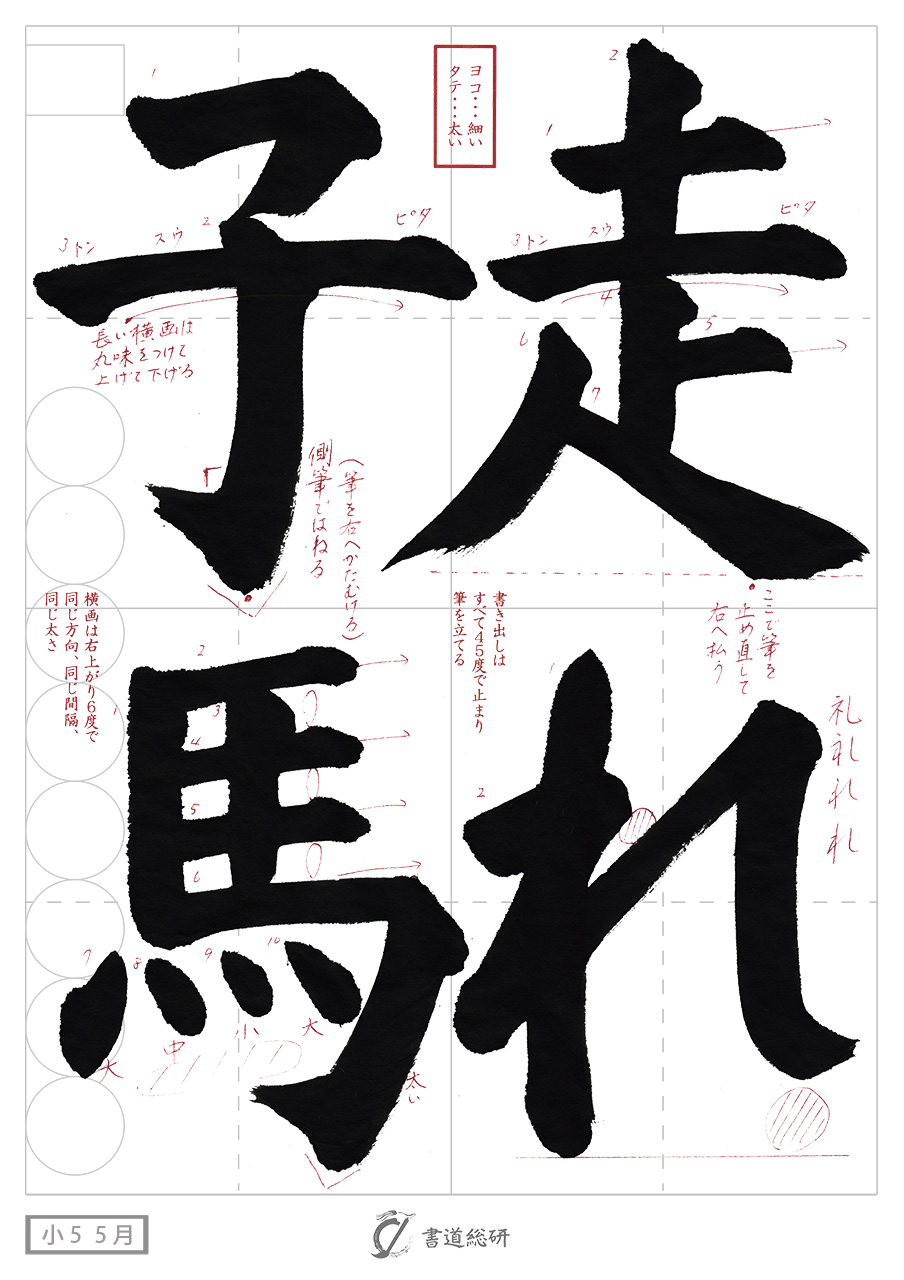 走れ
子馬
ヨコ・・・細い
タテ・・・太い
1
2
3トン
スウ
ピタ
4
5
6
7
ここで筆を
止め直して
右へ払う
書き出しは
すべて45度で止まり
筆を立てる
1
2
礼
礼
れ
れ
1
2
3トン
スウ
ピタ
長い横画は
丸味をつけて
上げて下げる
側筆ではねる
(筆を右へかたむける)
横画は右上がり6度で
同じ方向、同じ間隔、
同じ太さ
1
2
3
4
5
6
7
8
9
10
大
中
小
大
太い
小5 5月
書道総研